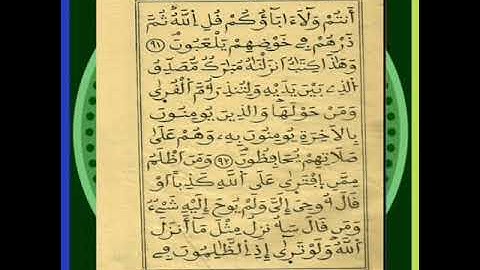 أَنتُمْ وَلَآ ءَابَآؤُكُمْ قُلِ اِللَّهُ ثُمَّ
ذَرْهُمْ فِے خَوْضِهِمْ يَلْعَبُونَ ٩١
وَهَٰذَا كِتَٰبٌ اَنزَلْنَٰهُ مُبَٰرَكٌ مُّصَدِّقُ
اُلذِے بَيْنَ يَدَيْهِ وَلِتُنذِرَ أُمَّ اَلْقُرٜىٰ
وَمَنْ حَوْلَهَا وَالذِينَ يُومِنُونَ
بِالَاخِرَةِ يُومِنُونَ بِهِۦ وَهُمْ عَلَىٰ
صَلَاتِهِمْ يُحَافِظُونَ ٩٢ وَمَنَ اَظْلَمُ
مِمَّنِ اِفْتَرٜىٰ عَلَى اَللَّهِ كَذِباً اَوْ
قَالَ أُوحِيَ إِلَيَّ وَلَمْ يُوحَ إِلَيْهِ شَےْءٌ
وَمَن قَالَ سَأُنزِلُ مِثْلَ مَآ أَنزَلَ
اَللَّهُ وَلَوْ تَرٜىٰ إِذِ اِلظَّٰلِمُونَ فِے